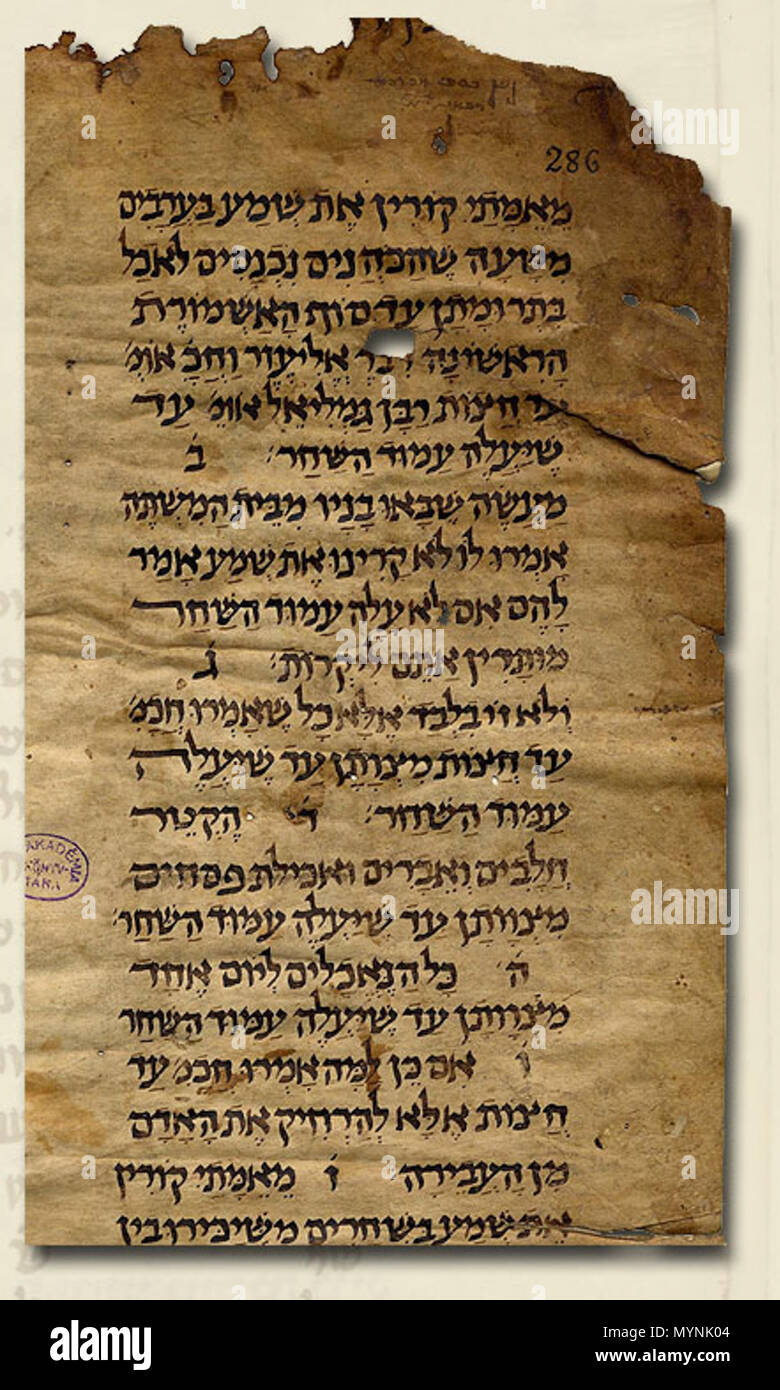 286
מאמתי קורין את שמע בערבים
משעה שהכהנים נכנסים לאכל
בתרומתן עד סוף האשמורת
הראשונה דבר אליעזר וחכ׳ אומ׳
עד חצות רבן גמליאל אומ׳ עד
שיעלה עמוד השחר׳ ב׳
מעשה שבאו בניו מבית המשתה
אמרו לו לא קרינו את שמע אמר
להם אם לא עלה עמוד השחר
מותרין אתם ליקרות׳ ג׳
ולא זו בלבד אלא כל שאמרו חכמ׳
עד חצות מצותן עד שיעלה
עמוד השחר׳ ד׳ הקטר
חלבים ואברים ואכילת פסחים
מיצוותן עד שיעלה עמוד השחר׳
ה׳ כל הנאכלים ליום אחד
מיצוותן עד שיעלה עמוד השחר
ו׳ אם כן למה אמרו חכמ׳ עד
חצות אלא להרחיק את האדם
מן העבירה ז׳ מאמתי קורין
את שמע בשחרים משיכירו בין
AKADÉMIA
TÁRA
a
alamy
alamy
alamy
Image ID: MYNK04
www.alamy.com